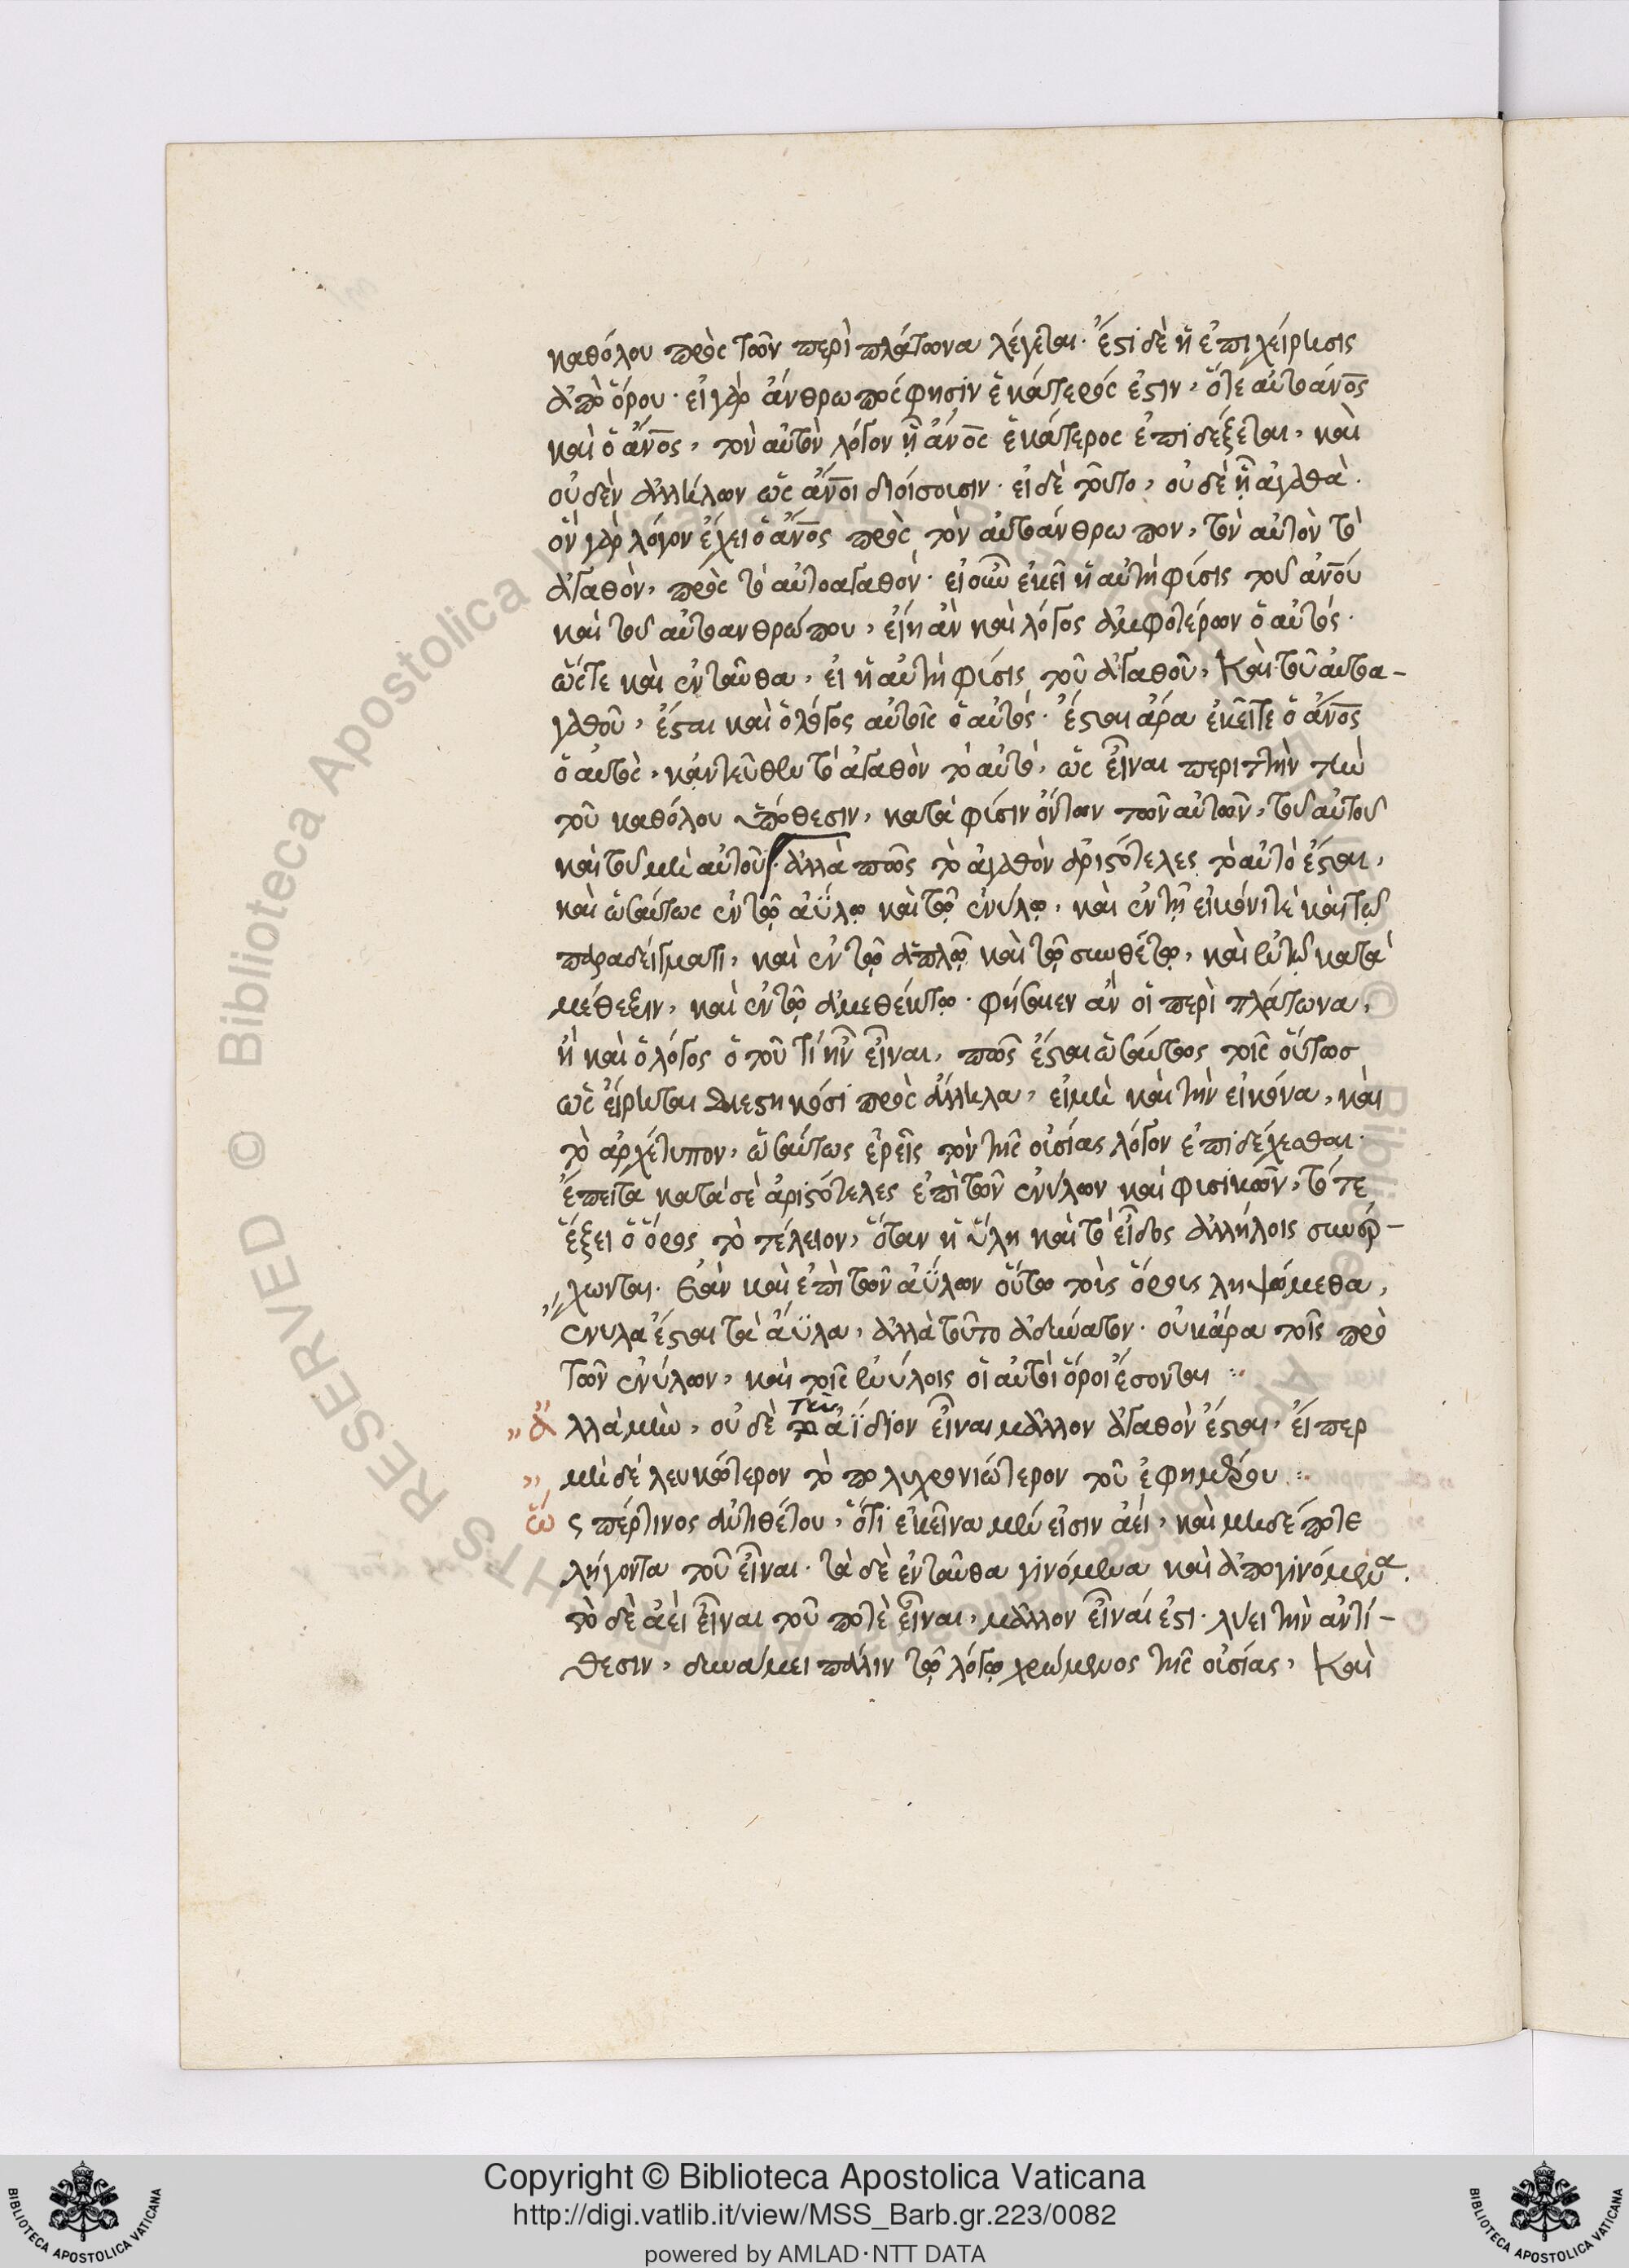 καθόλου πρὸς τῶν περὶ πλάτωνα λέγεται· ἔστι δὲ ἡ ἐπιχείρησις
ἀπὸ ὅρου· εἰ γὰρ ἄνθρωπός φησιν ἑκάτερός ἐστιν, ὅτε αὐτοάνο̅ς
καὶ ὁ ἄνο̅ς, τὸν αὐτὸν λόγον ᾗ ἄνο̅ς ἑκάτερος ἐπιδέξεται, καὶ
οὐδὲν ἀλλήλων ὡς ἄνο̅ι διοίσουσιν· εἰ δὲ τοῦτο, οὐδὲ ᾗ ἀγαθά·
ὃν γὰρ λόγον ἔχει ὁ ἄνο̅ς πρὸς τὸν αὐτοάνθρωπον, τὸν αὐτὸν τὸ
ἀγαθὸν, πρὸς τὸ αὐτοαγαθόν· εἰ οὖν ἐκεῖ ἡ αὐτὴ φύσις τοῦ ἀνο̅υ
καὶ τοῦ αὐτοανθρώπου, εἴη ἂν καὶ λόγος ἀμφοτέρων ὁ αὐτός·
ὥστε καὶ ἐνταῦθα, εἰ ἡ αὐτὴ φύσις τοῦ ἀγαθοῦ, καὶ τοῦ αὐτοα-
γαθοῦ, ἔσται καὶ ὁ λόγος αὐτοῖς ὁ αὐτός· ἔσται ἄρα ἐκεῖτε ὁ ἄνο̅ς
ὁ αὐτὸς, κἀντεῦθεν τὸ ἀγαθὸν τὸ αὐτό, ὡς εἶναι περιττὴν τὴν
τοῦ καθόλου ὑπόθεσιν, κατὰ φύσιν ὄντων τῶν αὐτῶν, τοῦ αὐτοῦ
καὶ τοῦ μὴ αὐτοῦ· ἀλλὰ πῶς τὸ ἀγαθὸν ἀριστότελες τὸ αὐτὸ ἔσται,
καὶ ὡσαύτως ἐν τῷ ἀΰλῳ καὶ τῷ ἐνύλῳ, καὶ ἐν τῇ εἰκόνι τὲ καὶ τῷ
παραδείγματι, καὶ ἐν τῷ ἁπλῷ καὶ τῷ συνθέτῳ, καὶ ἐν τῷ κατὰ
μέθεξιν, καὶ ἐν τῷ ἀμεθέκτῳ· φήσομεν ἂν οἱ περὶ πλάτωνα,
ἢ καὶ ὁ λόγος ὁ τοῦ τί ἦν εἶναι, πῶς ἔσται ὡσαύτως τοῖς οὕτως
ὡς εἴρηται διεστηκόσι πρὸς ἄλληλα, εἰ μὴ καὶ τὴν εἰκόνα, καὶ
τὸ ἀρχέτυπον, ὡσαύτως ἐρεῖς τὸν τῆς οὐσίας λόγον ἐπιδέχεσθαι·
ἔπειτα κατὰ σὲ ἀριστότελες ἐπὶ τῶν ἐνύλων καὶ φυσικῶν, τότε
ἕξει ὁ ὅρος τὸ τέλειον, ὅταν ἡ ὕλη καὶ τὸ εἶδος ἀλλήλοις συνέρ-
χωνται· ἐὰν καὶ ἐπὶ τῶν ἀΰλων οὕτω τοὺς ὅρους ληψόμεθα,
ἔνυλα ἔσται τὰ ἄϋλα, ἀλλὰ τοῦτο ἀδύνατον· οὐκ ἄρα τοῖς πρὸ
τῶν ἐνύλων, καὶ τοῖς ἐνύλοις οἱ αὐτοὶ ὅροι ἔσονται :·
" ἀλλὰ μὴν, οὐδὲ τῷ ἀΐδιον εἶναι μᾶλλον ἀγαθὸν ἔσται, εἴπερ
" μὴ δὲ λευκότερον τὸ πολυχρονιώτερον τοῦ ἐφημέρου :·
ὥσπέρ τινος ἀντιθέτου, ὅτι ἐκεῖνα μέν εἰσιν ἀεί, καὶ μηδέποτε
λήγοντα τοῦ εἶναι· τὰ δὲ ἐνταῦθα γινόμενα καὶ ἀπογινόμενα.
τὸ δὲ ἀεὶ εἶναι τοῦ ποτὲ εἶναι, μᾶλλον εἶναί ἐστι· λύει τὴν ἀντί-
θεσιν, δυνάμει πάλιν τῷ λόγῳ χρώμενος τῆς οὐσίας, καὶ
Copyright © Biblioteca Apostolica Vaticana
http://digi.vatlib.it/view/MSS_Barb.gr.223/0082
powered by AMLAD·NTT DATA